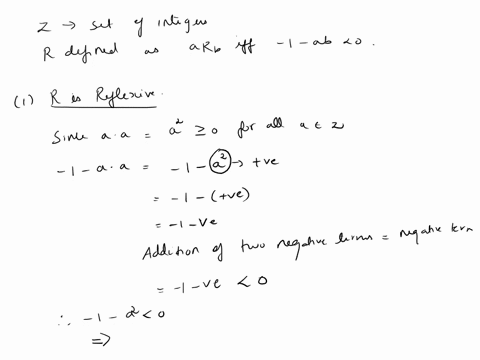 Z → set of integers
R defined as aRb iff -1-ab < 0.
(1) R is Reflexive.
Since a.a = a² ≥ 0 for all a ∈ z
-1-a.a = -1-a² → +ve
= -1-(+ve)
= -1-ve
Addition of two negative terms = negative term
= -1-ve < 0
∴ -1-a² < 0
⇒